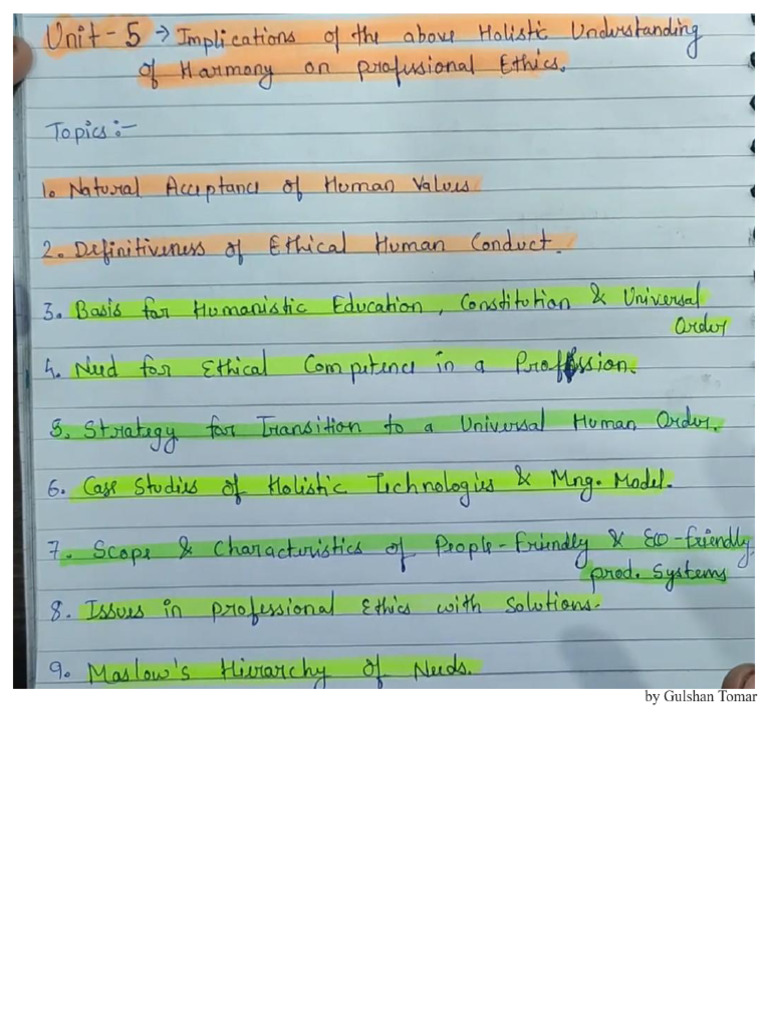 Unit - 5 → Implications of the above Holistic Understanding
of Harmony on professional Ethics.
Topics :-
1. Natural Acceptance of Human Values
2. Definitiveness of Ethical Human Conduct.
3. Basis for Humanistic Education, Constitution & Universal
Order
4. Need for Ethical Competence in a Profession.
5. Strategy for Transition to a Universal Human Order.
6. Case Studies of Holistic Technologies & Mng. Model.
7. Scope & Characteristics of People-Friendly & Eco-friendly
prod. Systems
8. Issues in professional Ethics with Solutions.
9. Maslow's Hierarchy of Needs.
by Gulshan Tomar